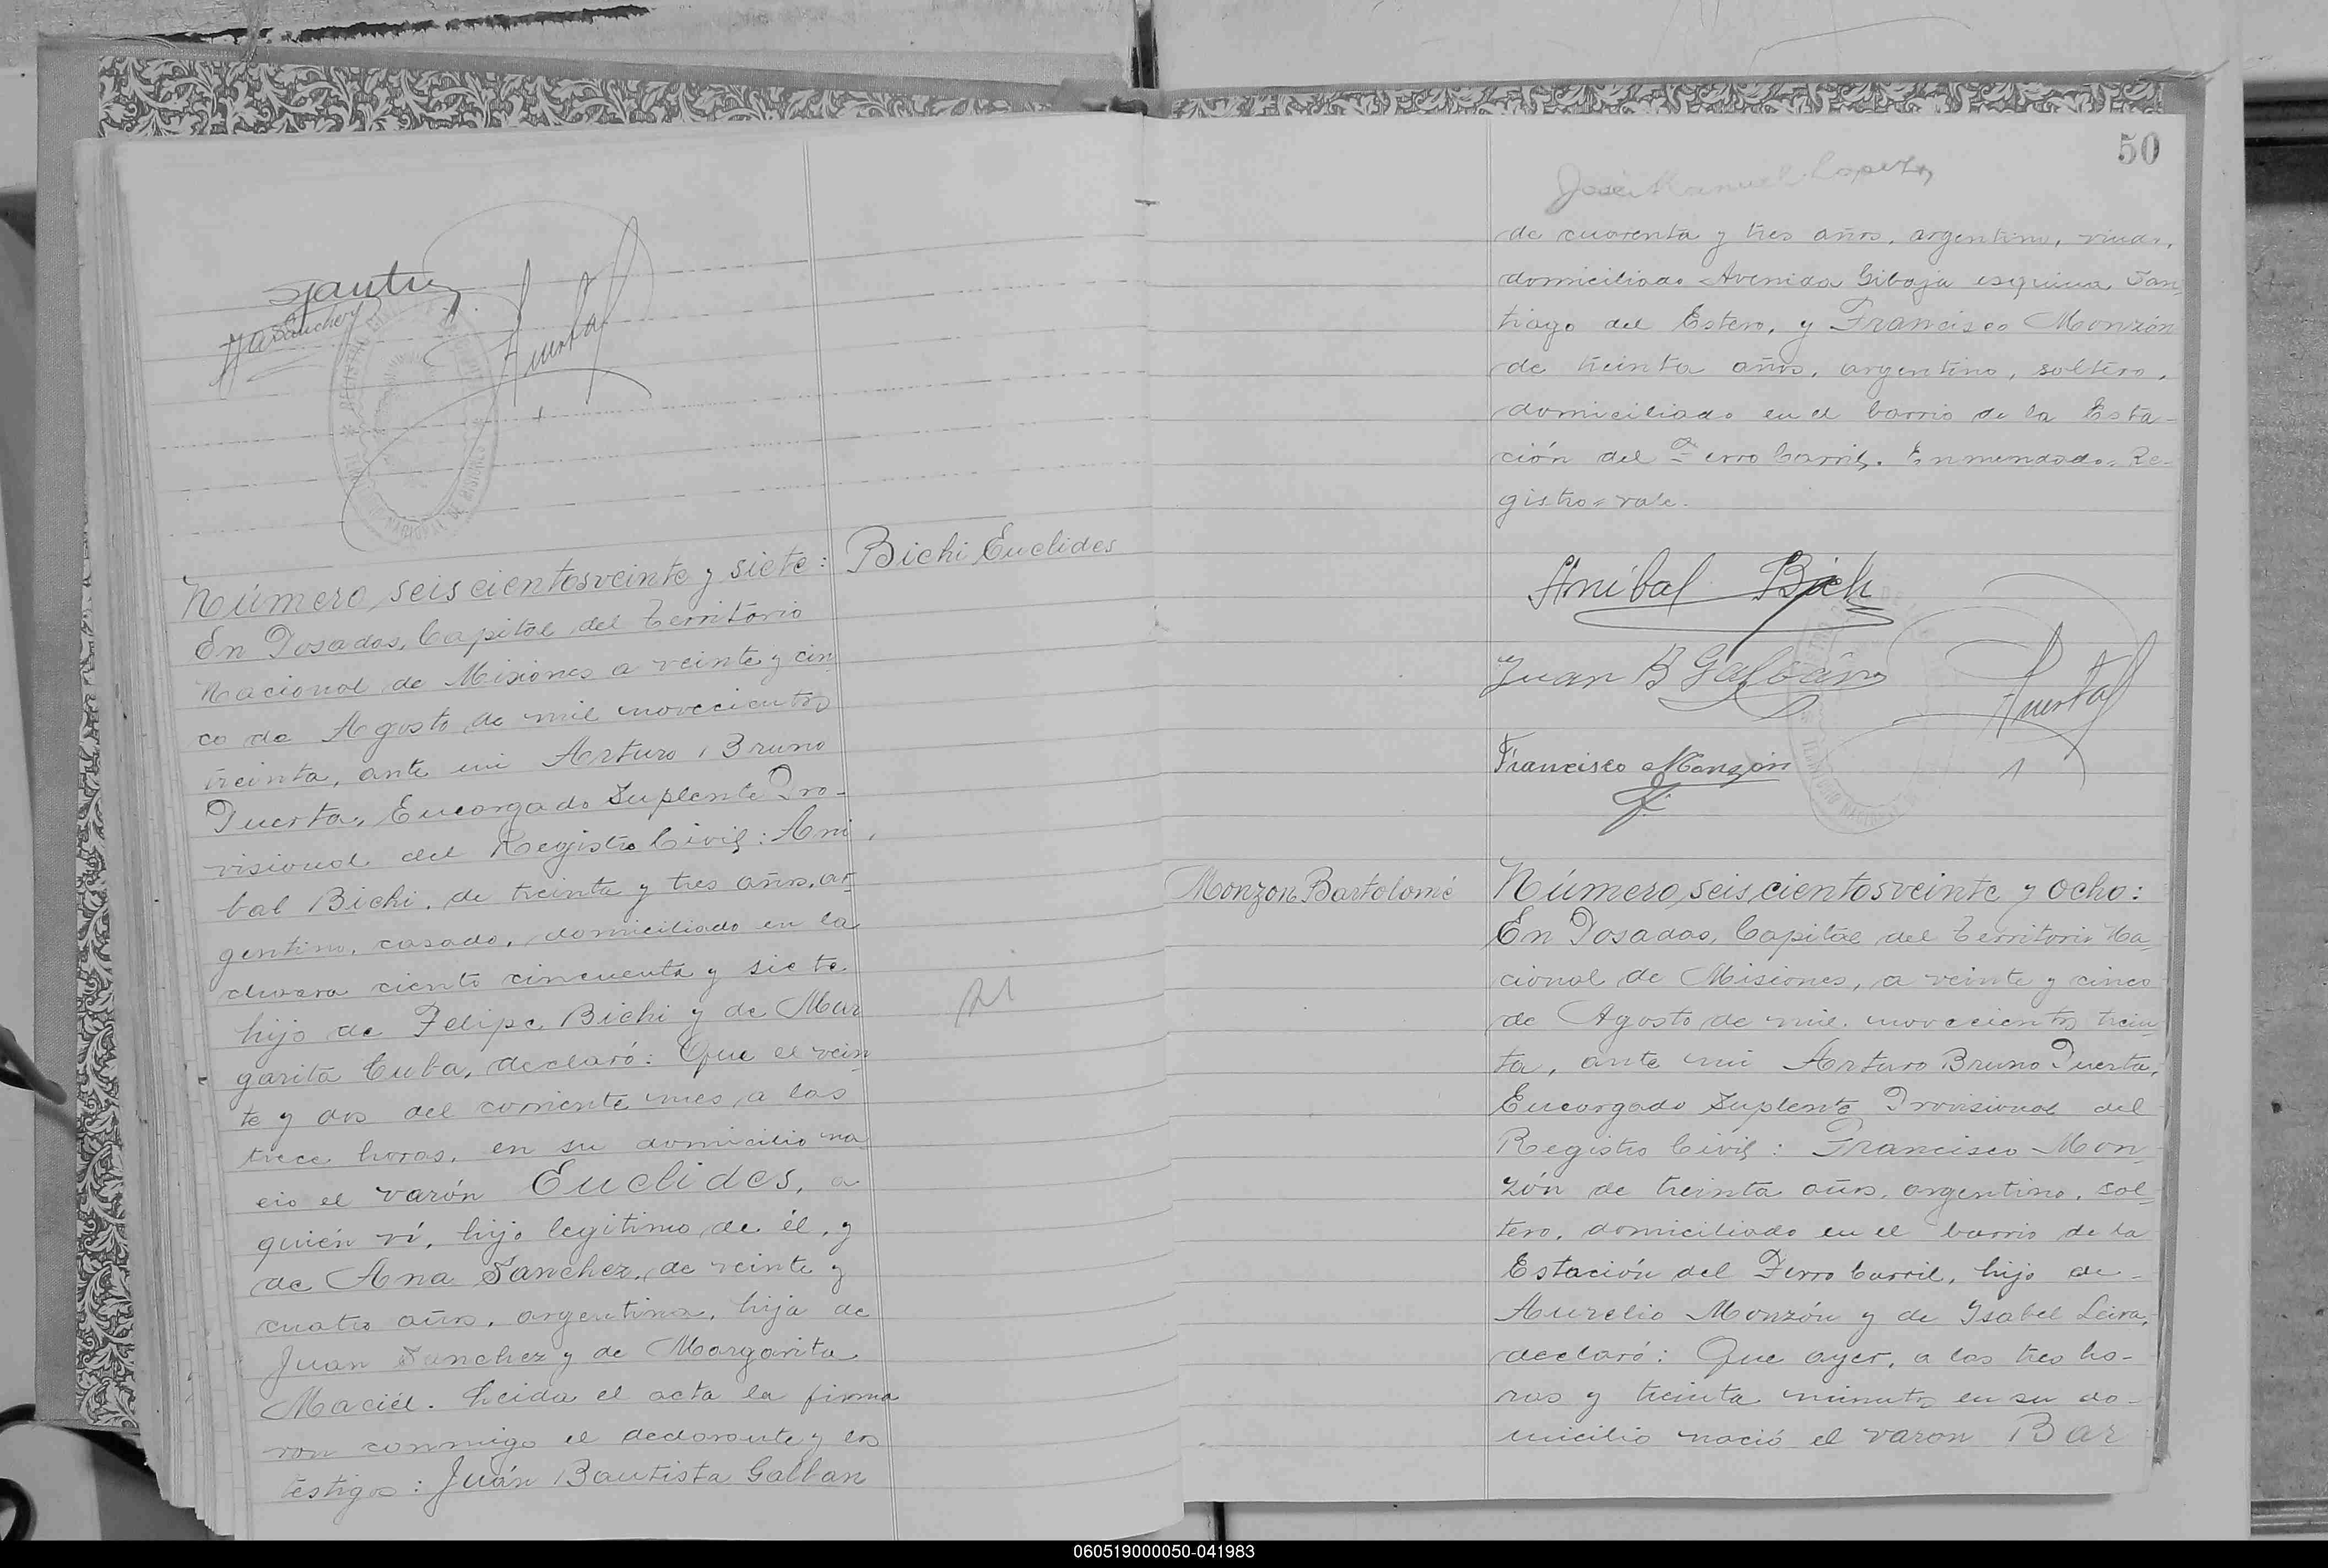 JASanchez
Puerta
REGISTRO CIVIL
TERRITORIO NACIONAL DE MISIONES
Número seiscientos veinte y siete:
Bichi Euclides
En Posadas, Capital del Territorio
Nacional de Misiones a veinte y cin
co de Agosto de mil novecientos
treinta, ante mi Arturo Bruno
Puerta, Encargado Suplente Pro-
visional del Registro Civil: Ani
bal Bichi, de treinta y tres años, ar-
gentino, casado, domiciliado en la
chacra ciento cincuenta y siete
hijo de Felipe Bichi y de Mar
garita Cuba, declaró: Que el vein
te y dos del corriente mes, a las
trece horas, en su domicilio na
cio el varón Euclides, a
quién ví, hijo legitimo de él, y
de Ana Sanchez, de veinte y
cuatro años, argentina, hija de
Juan Sanchez y de Margarita
Maciél. Leida el acta la firma
ron conmigo el declarante y los
testigos: Juán Bautista Galban
21
50
José Manuel Lopez
de cuarenta y tres años, argentino, viudo,
domiciliado Avenida Gibaja esquina San
tiago del Estero, y Francisco Monzón
de treinta años, argentino, soltero,
domiciliado en el barrio de la Esta-
ción del Ferro Carril. Enmendado = Re-
gistro = vale.
Anibal Bichi
Juan B Galbán
Puerta
Francisco Monzon
Monzon Bartolomé
Número seiscientos veinte y ocho:
En Posadas, Capital del Territorio Na
cional de Misiones, a veinte y cinco
de Agosto de mil novecientos trein
ta, ante mi Arturo Bruno Puerta,
Encargado Suplente Provisional del
Registro Civil: Francisco Mon-
zón de treinta años, argentino, sol-
tero, domiciliado en el barrio de la
Estación del Ferro Carril, hijo de
Aurelio Monzón y de Ysabel Leiva,
declaró: Que ayer, a las tres ho-
ras y treinta minutos en su do-
micilio nació el varon Bar
060519000050-041983